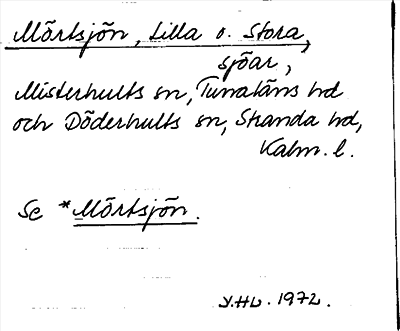 Mörtsjön, Lilla o. Stora,
sjöar,
Misterhults sn, Tunaläns hd
och Döderhults sn, Stranda hd,
Kalm. l.
Se *Mörtsjön.
Y.HL. 1972.